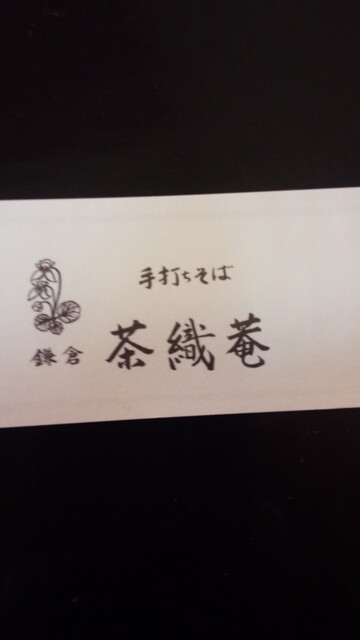 手打ちそば
鎌倉 茶織菴